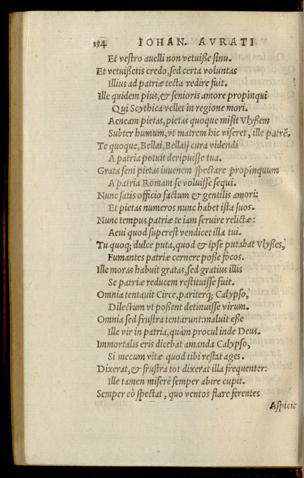 194 IOHAN. AVRATI
Et vestro auelli non vetuisse sinu.
Et vetuißetis credo, sed certa voluntas
Illius ad patriæ tecta redire fuit.
Ille quidem pius, & senioris amore propinqui
Qui Scythica vellet in regione mori.
Aeneam pietas, pietas quoque misit Vlyßem
Subter humum, vt matrem hic viseret, ille patrẽ.
Te quoque, Bellai, Bellaij cura videndi
A patria potuit deripuisse tua.
Grata seni pietas iuuenem spectare propinquum
A patria Romam se voluisse sequi.
Nunc satis officio factum & gentilis amori:
Et pietas numeros nunc habet ista suos.
Nunc tempus patriæ te iam seruire relictæ:
Aeui quod superest vendicet illa tui.
Tu quoq; dulce puta, quod & ipse putabat Vlysses,
Fumantes patriæ cernere posse focos.
Ille moras habuit gratas, sed gratius illis
Se patriæ reducem restituisse fuit.
Omnia tentauit Circe, pariterq; Calypso,
Dilectum vt possent detinuisse virum.
Omnia sed frustra tentarunt: maluit esse
Ille vir in patria, quàm procul inde Deus.
Immortalis eris dicebat amanda Calypso,
Si mecum vitæ quod tibi restat ages.
Dixerat, & frustra tot dixerat illa frequenter:
Ille tamen miserè semper abire cupit.
Semper eò spectat, quo ventos flare ferentes
Aspicit